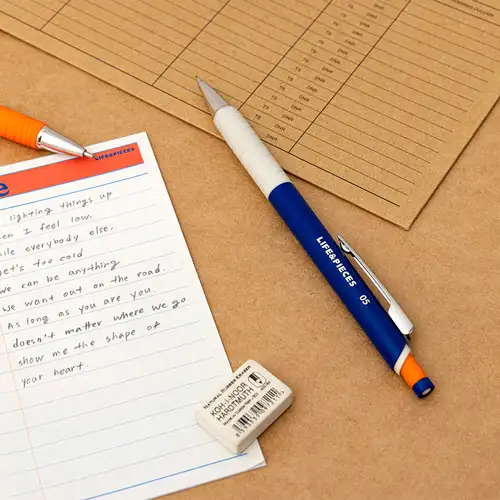 LIFE&PIECES
e
lighting things up
en I feel low.
ile everybody else.
pet's too cold
we can be anything
we want out on the road.
As long as you are you.
doesn't matter where we go
show me the shape of
your heart.
LIFE&PIECES 05
NATURAL RUBBER ERASER
KOH-I-NOOR
HARDTMUTH